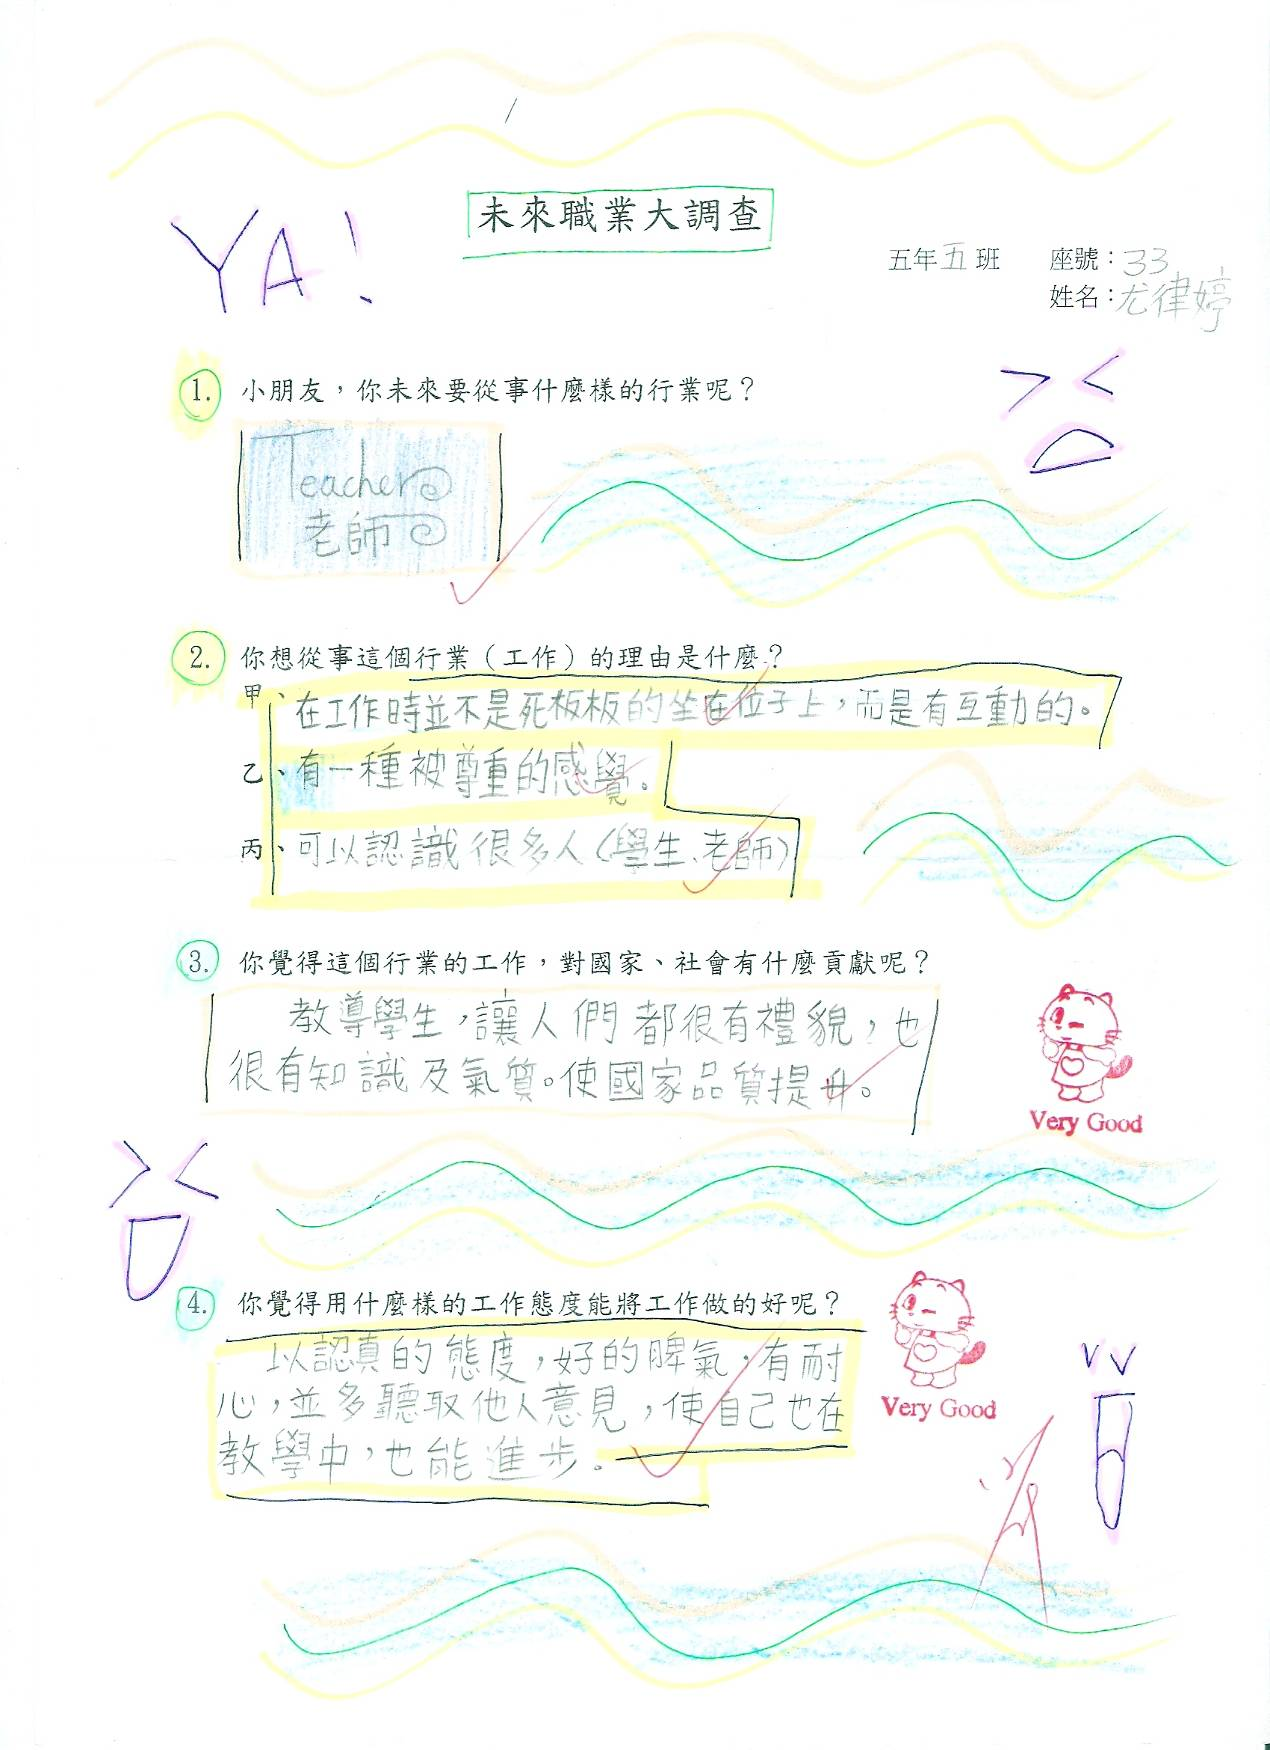 未來職業大調查
YA!
五年五班 座號：33
姓名：尤律婷
1. 小朋友，你未來要從事什麼樣的行業呢？
Teacher
老師
2. 你想從事這個行業（工作）的理由是什麼？
甲、在工作時並不是死板板的坐在位子上，而是有互動的。
乙、有一種被尊重的感覺。
丙、可以認識很多人（學生、老師）
3. 你覺得這個行業的工作，對國家、社會有什麼貢獻呢？
教導學生，讓人們都很有禮貌，也
很有知識及氣質。使國家品質提升。
Very Good
4. 你覺得用什麼樣的工作態度能將工作做的好呢？
以認真的態度，好的脾氣，有耐
心，並多聽取他人意見，使自己也在
教學中，也能進步。
Very Good